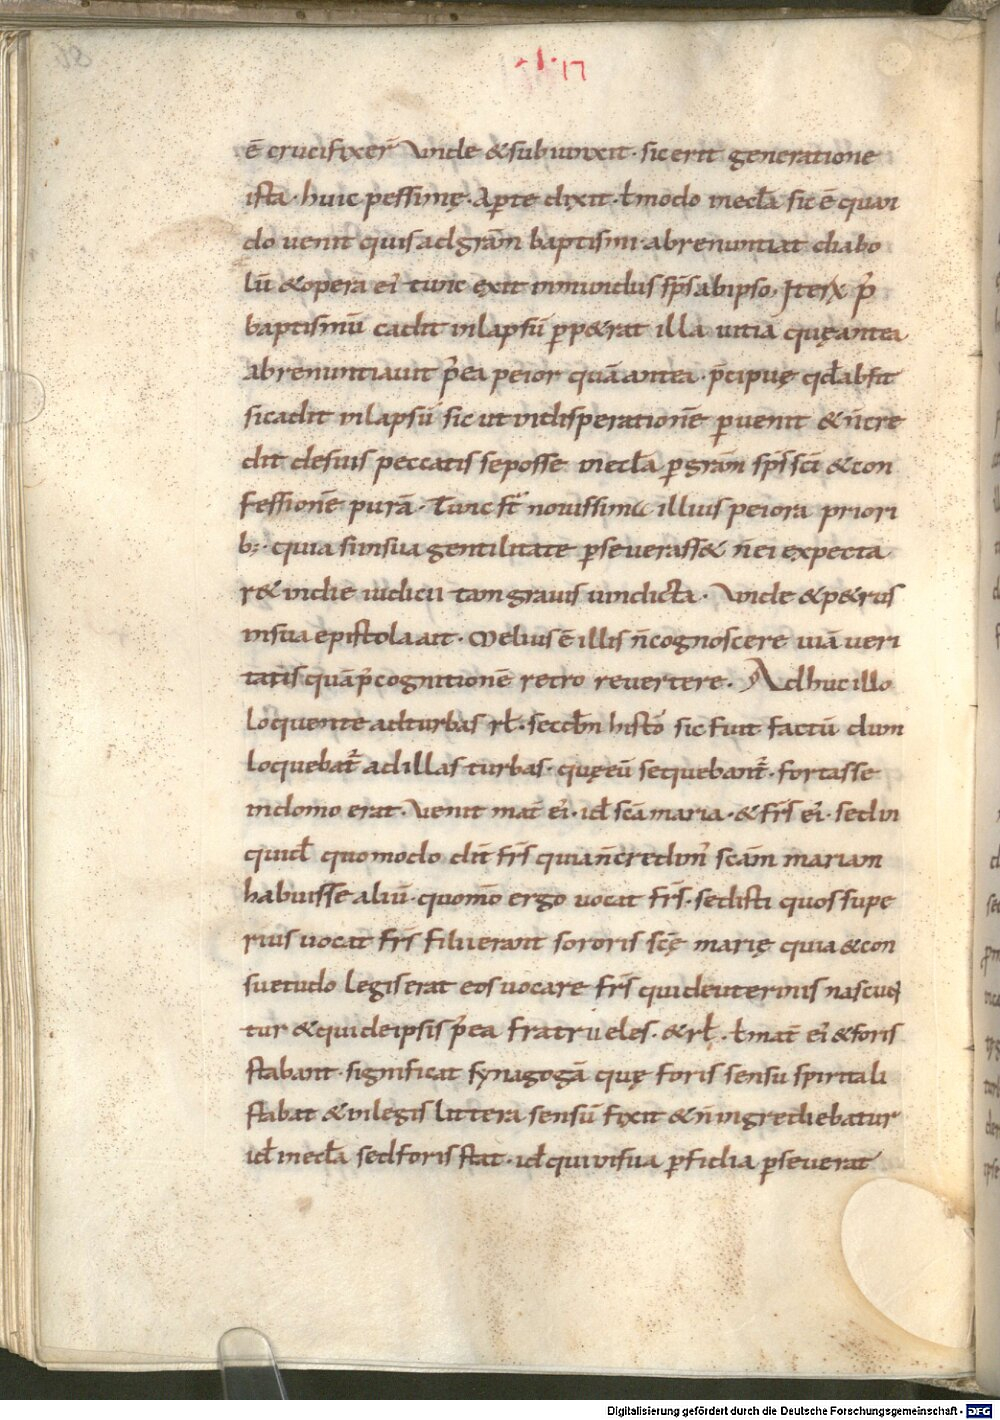 ·I·17
ē crucifixer̄ Vnde &subiunxit· sic erit generatione
ista· huic pessimę· Aꝑte dixit· ł modo inecła sic ē quan
do uenit quis adgrām baptismi· abrenuntiat diabo
lū &opera ei' tunc exit inmundus sp̄s abipso· Iterꝝ p̓
baptismū cadit inlapsū ꝑp&rat illa uitia quęantea
abrenuntiauit p̓ea peior quā antea· p̄cipuę qđ absit
sicadit inlapsū sic ut indisperationē ꝑuenit &n̄cre
dit desuis peccatis seposse inecła ꝑgrām sp̄s sc̄i &con
fessionē purā· Tunc f̄t nouissima illius peiora priori
b;· quia siinsua gentilitate ꝑseuerass& n̄ ei expecta
r& indie iudicii tam grauis uindicta· Vnde &p&rus
insua epistola ait· Melius ē illis n̄cognoscere uiā ueri
tatis quā p̓cognitionē retro revertere· Adhuc illo
loquente adturbas rł· seccđn histō sic fuit factū dum
loquebat̄ adillas turbas· quęeū sequebant̄· fortasse
indomo erat· Venit mat̄ ei'· id sc̄a maria· & fr̄s ei'· sedin
quid quomodo dn̄t fr̄s quian̄credim' sc̄am mariam
habuisse aliū· quomō ergo uocat fr̄s· sedisti quos supe
rius uocat fr̄s filii erant sororis sc̄ę marię quia &con
suetudo legis erat eos uocare fr̄s quideuterinis nascun
tur &quideipsis p̓ea fratrueles· &rł· ł mat̄ ei' &foris
stabant· significat synagogā quę foris sensu spiritali
stabat &inlegis littera sensū fixit &n̄ ingrediebatur
id inecła sedforis stat· id quiinsua ꝑfidia ꝑseuerat
Digitalisierung gefördert durch die Deutsche Forschungsgemeinschaft - DFG